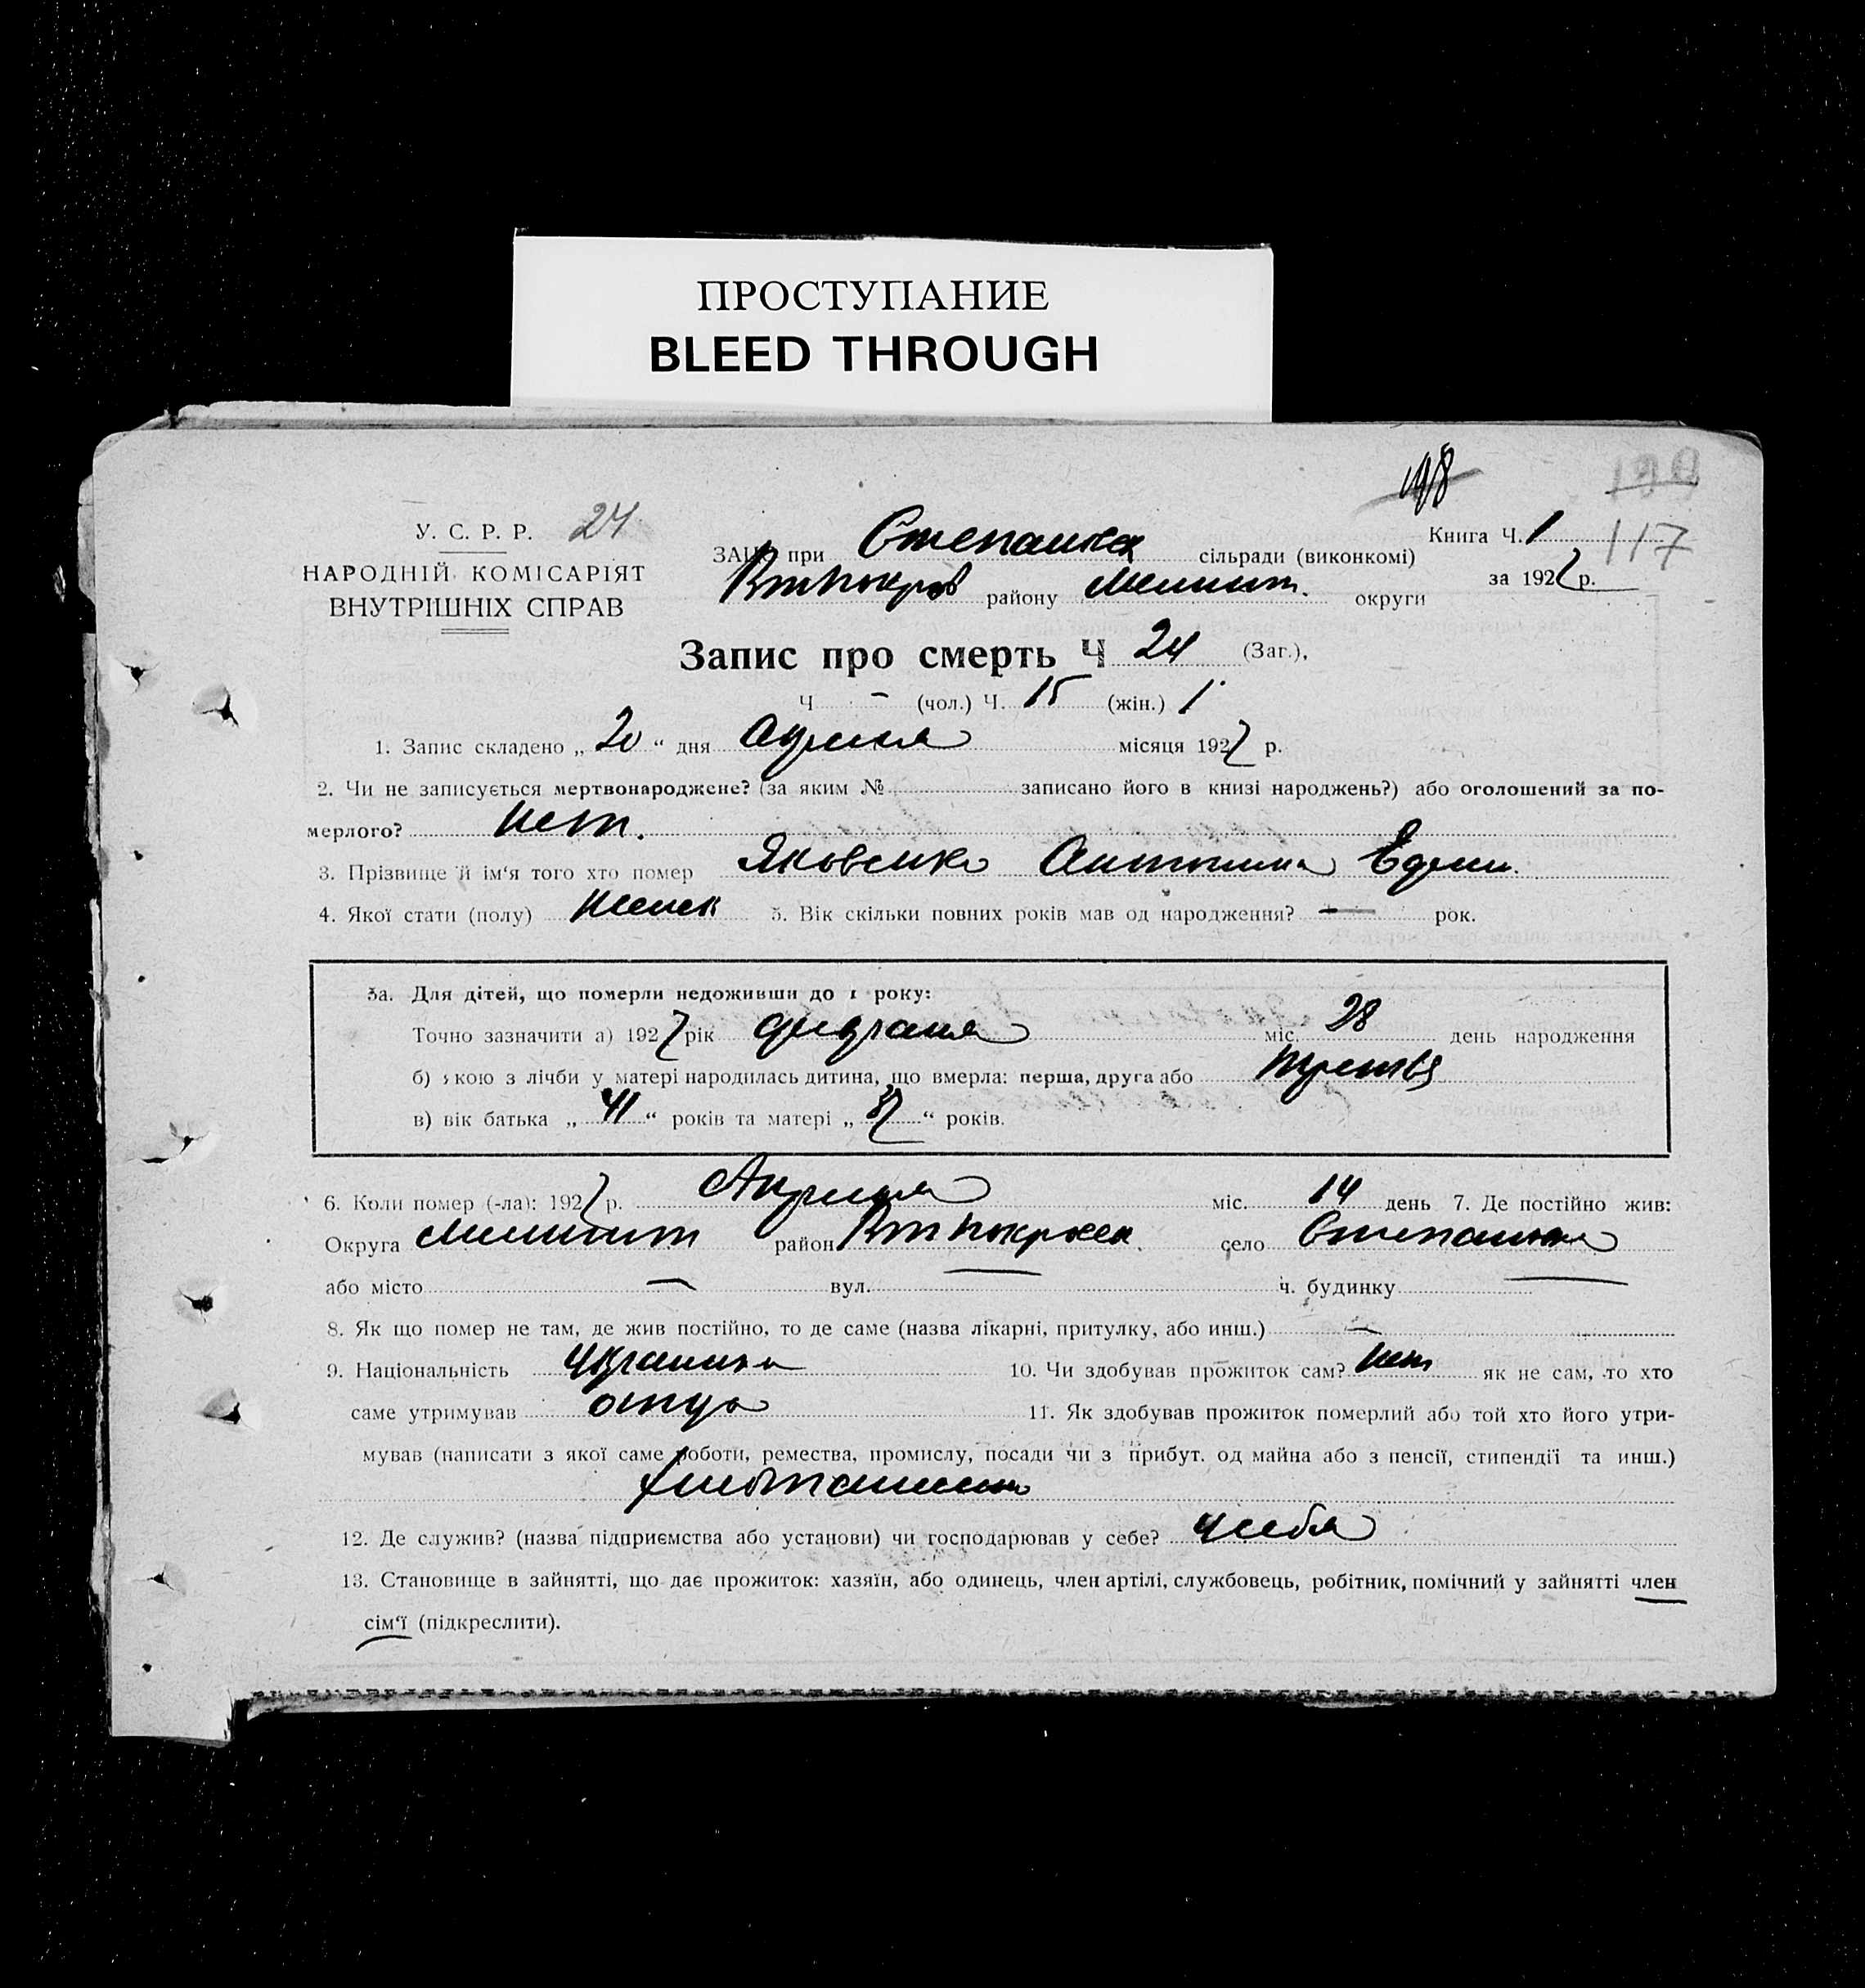 ПРОСТУПАНИЕ
BLEED THROUGH
118
У. С. Р. Р. 24
НАРОДНІЙ КОМІСАРІЯТ
ВНУТРІШНІХ СПРАВ
ЗАГС при Степановка сільради (виконкомі)
Втпокров району Мелитоп. округи
Книга Ч. 1 117
за 1927 р.
Запис про смерть Ч 24 (Заг.),
Ч - (чол.) Ч. 15 (жін.) 1
1. Запис складено „ 20 “ дня Апреля місяця 1927 р.
2. Чи не записується мертвонароджене? (за яким № записано його в книзі народжень?) або оголошений за по-
мерлого? нет.
3. Прізвище й ім‘я того хто помер Яковенко Антонина
4. Якої стати (полу) женск 5. Вік скільки повних років мав од народження? — рок.
5а. Для дітей, що померли недоживши до 1 року:
Точно зазначити а) 1927 рік февраля міс. 28 день народження
б) якою з лічби у матері народилась дитина, що вмерла: перша, друга або
в) вік батька „ 41 “ років та матері „ 37 “ років.
6. Коли помер (-ла): 1927 р. Апреля міс. 14 день 7. Де постійно жив:
Округа Мелитоп район Втпокровск село Степановка
або місто — вул. — ч. будинку —
8. Як що помер не там, де жив постійно, то де саме (назва лікарні, притулку, або инш.) —
9. Національність Украинка 10. Чи здобував прожиток сам? нет як не сам, то хто
саме утримував отец 11. Як здобував прожиток померлий або той хто його утри-
мував (написати з якої саме роботи, ремества, промислу, посади чи з прибут. од майна або з пенсії, стипендії та инш.)
12. Де служив? (назва підприємства або установи) чи господарював у себе? у себя
13. Становище в зайнятті, що дає прожиток: хазяїн, або одинець, член артілі, службовець, робітник, помічний у зайнятті член
сім‘ї (підкреслити).